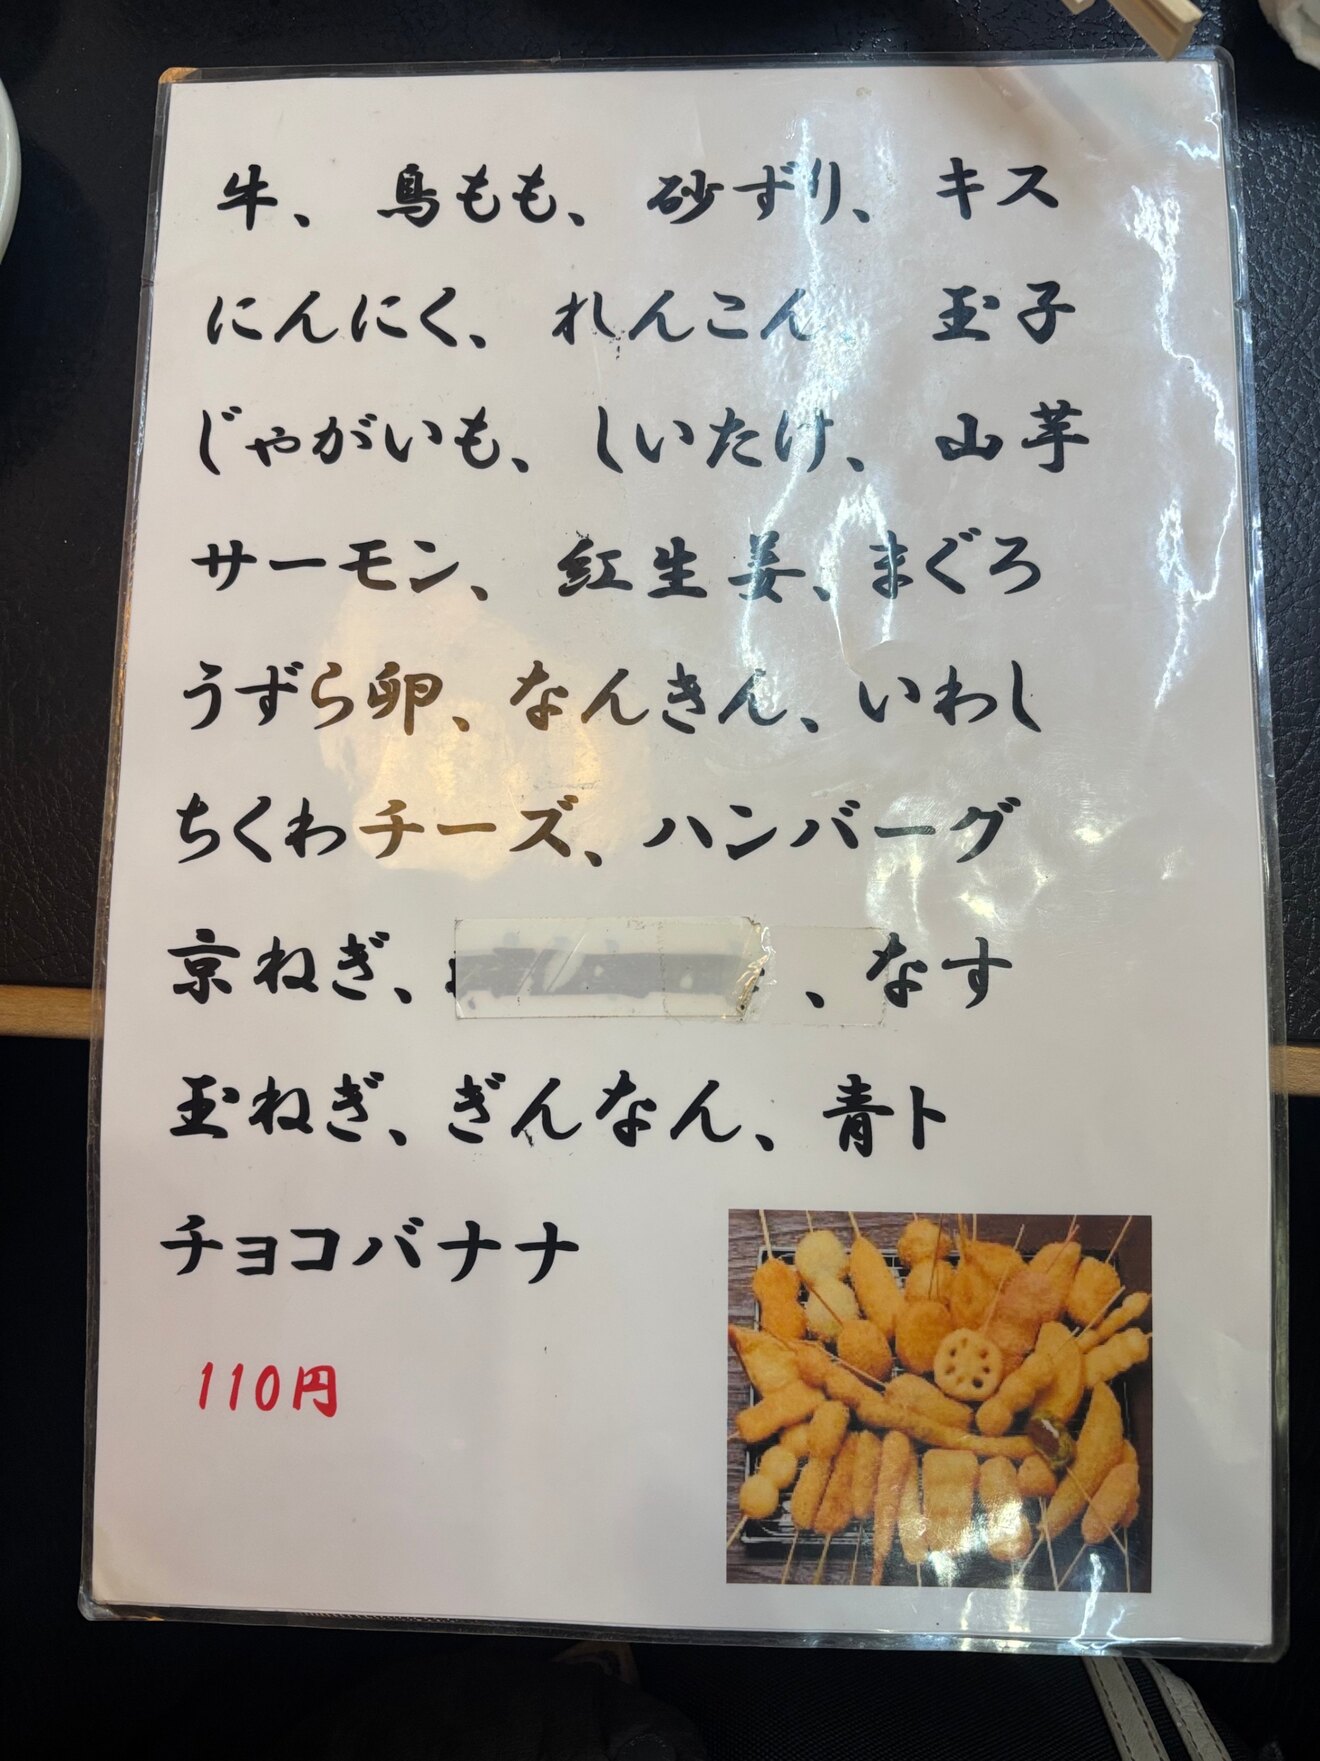 牛、 鳥もも、 砂ずり、 キス
にんにく、 れんこん 玉子
じゃがいも、 しいたけ、 山芋
サーモン、 紅生姜、まぐろ
うずら卵、なんきん、いわし
ちくわチーズ、ハンバーグ
京ねぎ、 、なす
玉ねぎ、ぎんなん、青ト
チョコバナナ
110円